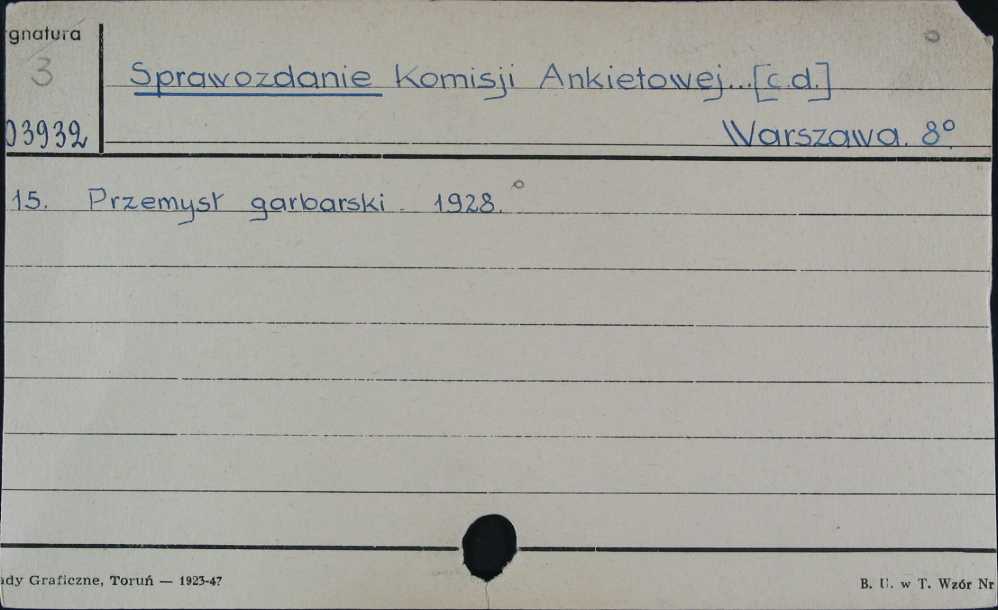 gnatura
3
03932
Sprawozdanie Komisji Ankietowej...[c.d.]
Warszawa. 8º.
15. Przemysł garbarski. 1928.
ady Graficzne, Toruń — 1923-47
B. U. w T. Wzór Nr